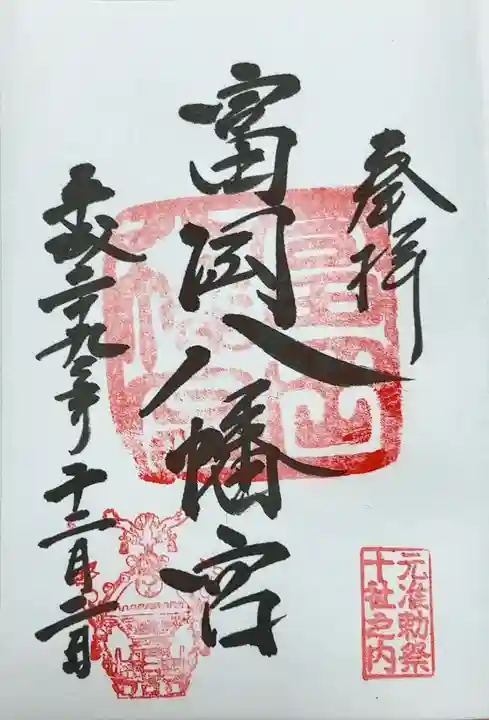 奉拝
富岡八幡宮
平成二十九年十二月二日
元准勅祭
十社之内